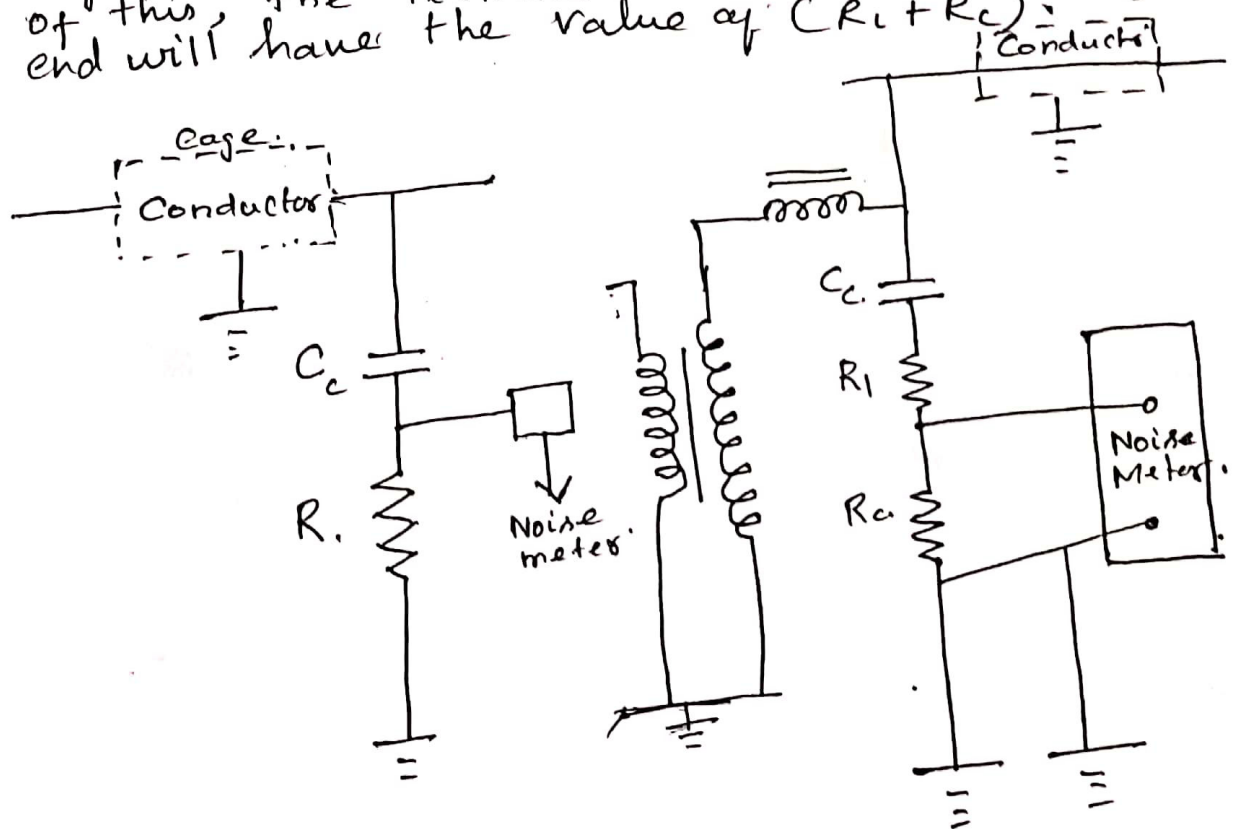 of this, the
end will have the value of (R1 + Rc).
Conductor
Cage.
Conductor
Cc
R.
Noise
meter.
Cc.
R1
Rc.
Noise
Meter.